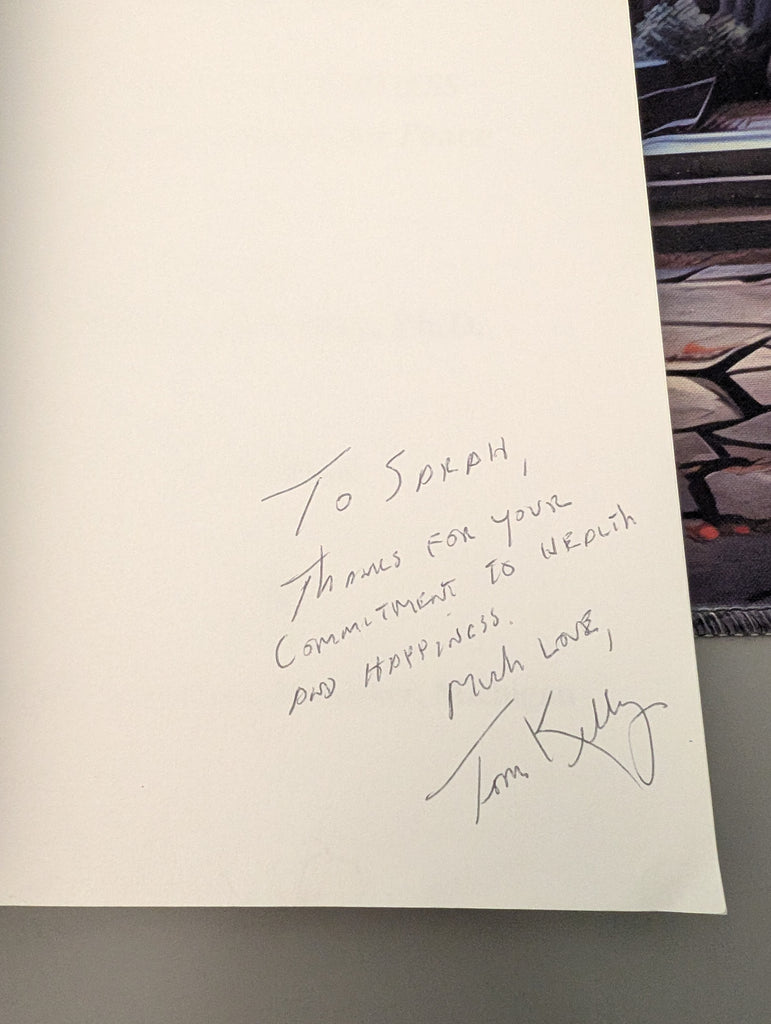 To SARAH,
Thanks FOR YOUR
COMMITMENT TO HEALTH
AND HAPPINESS.
Much LOVE,
Tom Kelly